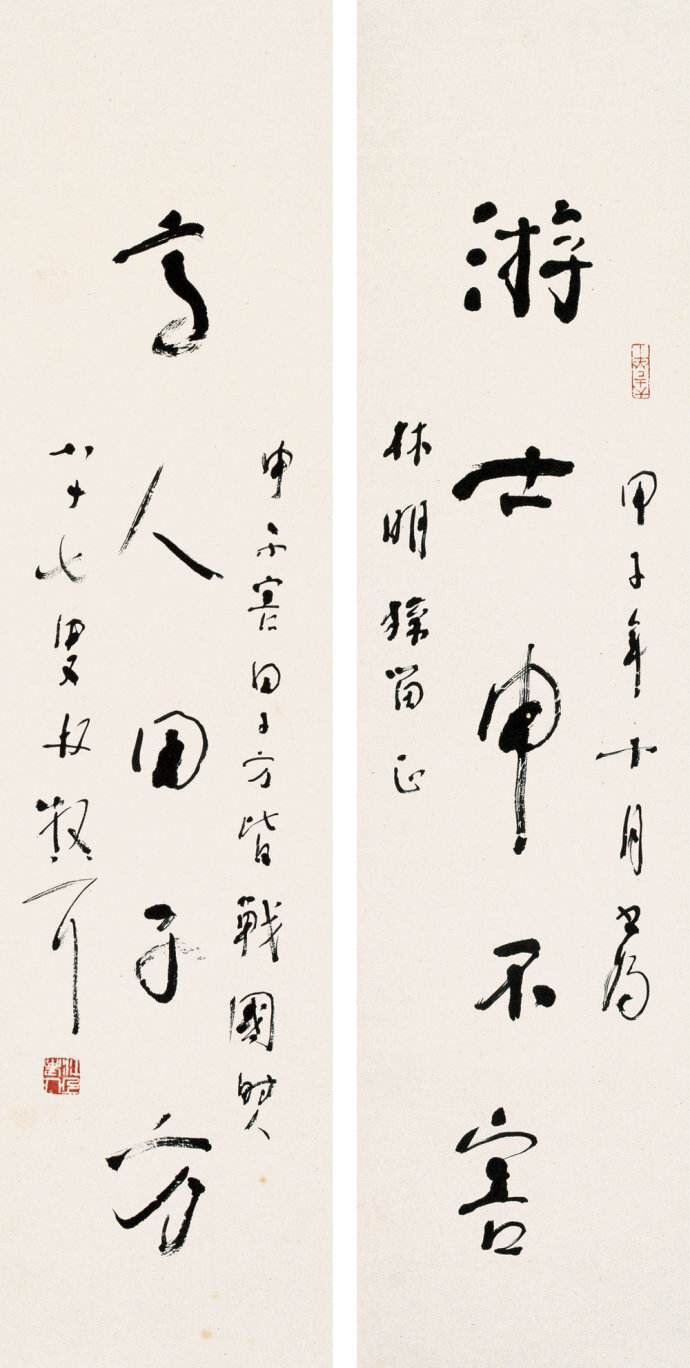 甲子年十月书为
游士申不害
林明留正
申不害田子方皆戰國時人
高人田子方
八十七叟林散耳